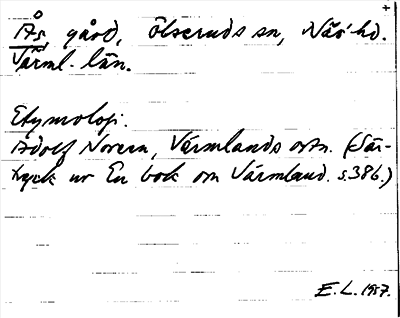 +
Ås, gård, Ölseruds sn, Näs hd.
Värml. län.
Etymologi.
Adolf Noreen, Värmlands ortn. (Sär-
tryck ur En bok om Värmland. s.386.)
E. L. 1957.